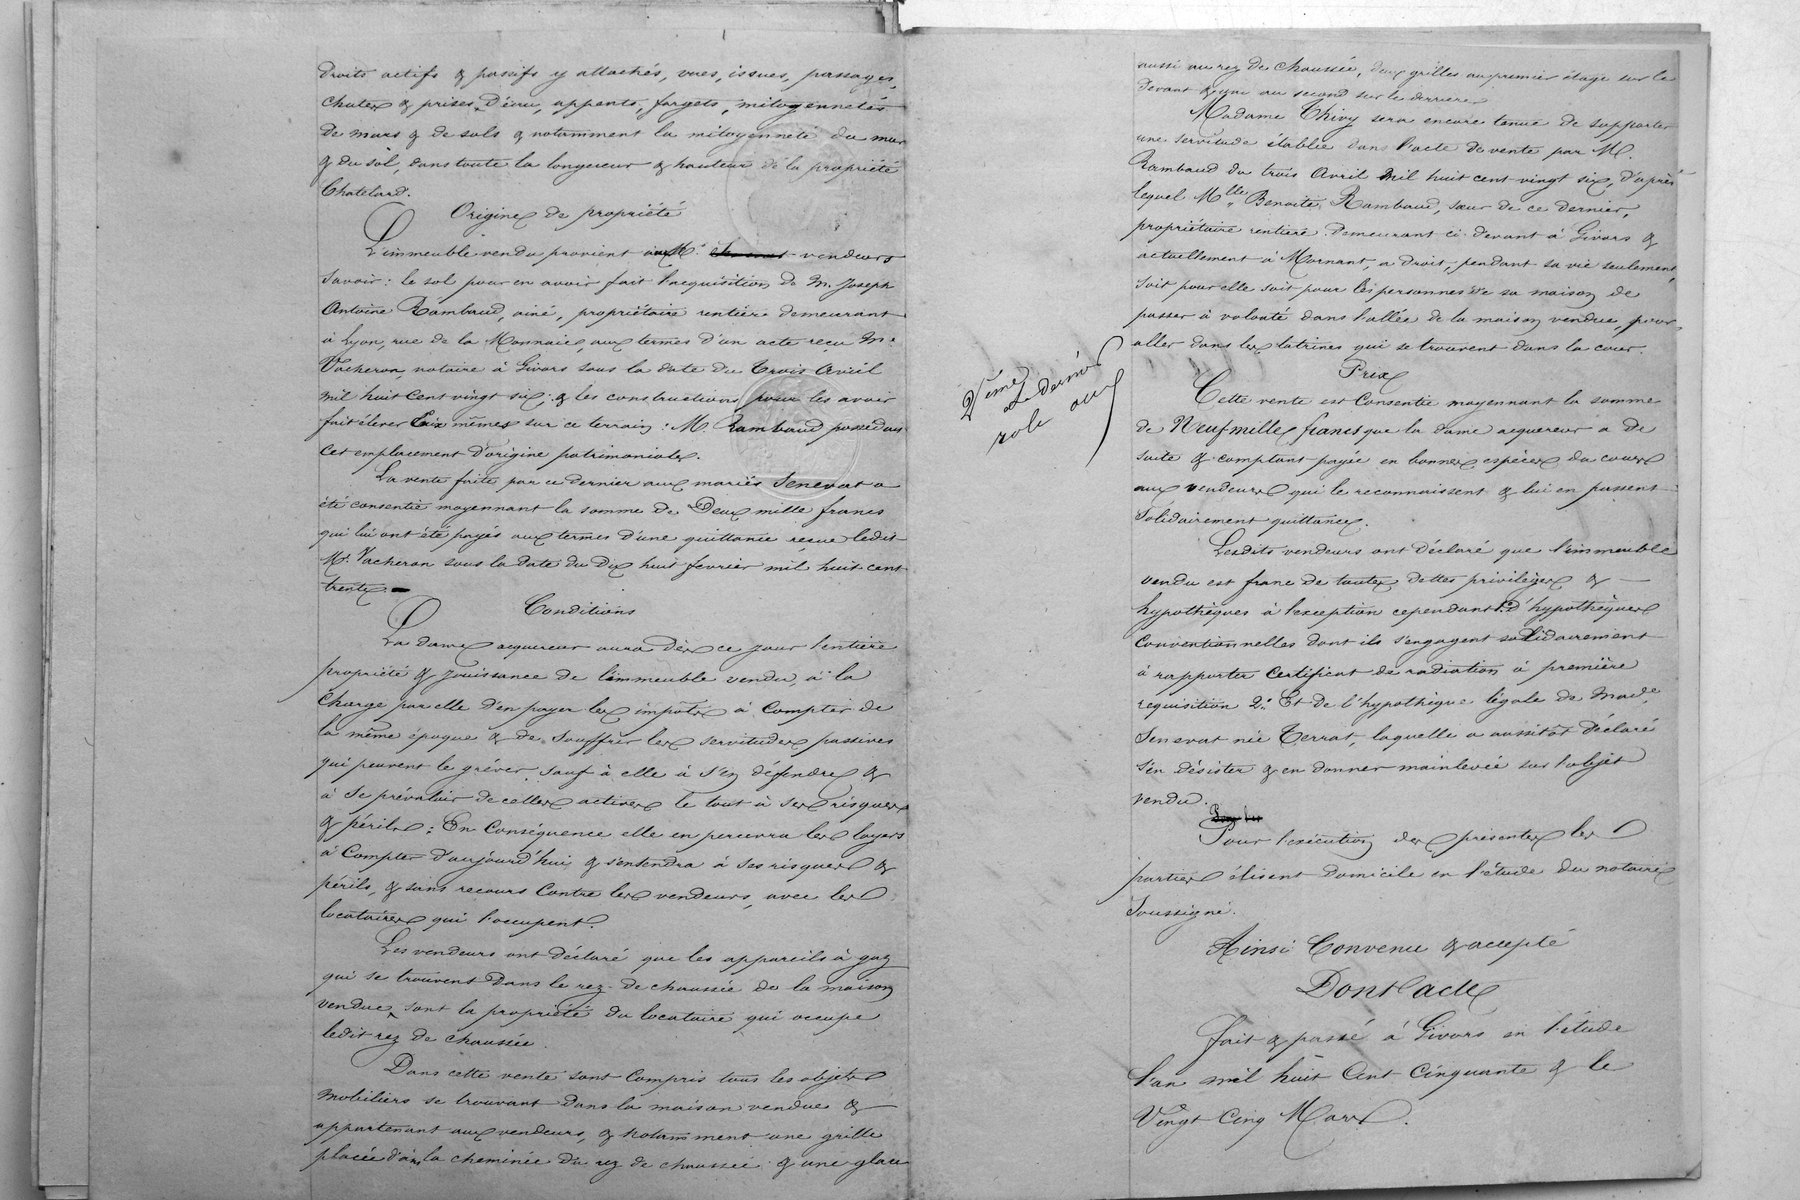 droits actifs & passifs y attachés, vues, issues, passages,
chutes & prises d'eau, appents, forgets, mitoyennetés
de murs & de sols & notamment la mitoyenneté du mur
& du sol, dans toute la longueur & hauteur de la propriété
Chatelard.
Origine de propriété
L'immeuble vendu provient aux M. vendeurs
Savoir: le sol pour en avoir fait l'acquisition de M. Joseph
Antoine Rambaud, ainé, propriétaire rentier demeurant
à Lyon, rue de la Monnaie, aux termes d'un acte reçu Me
Vacheron, notaire à Givors sous la date du Trois Avril
mil huit cent vingt six; & les constructions pour les avoir
fait élever Eux mêmes sur ce terrain: M. Rambaud possédait
cet emplacement d'origine patrimoniale.
La vente faite par ce dernier aux mariés Senevat a
été consentie moyennant la somme de Deux mille francs
qui lui ont été payés aux termes d'une quittance reçue ledit
Me Vacheron sous la date du Dix huit février mil huit cent
trente.
Conditions
La dame acquereur aura dès ce jour l'entière
propriété & jouissance de l'immeuble vendu, à la
charge par elle d'en payer les impots à compter de
la même époque & de souffrir les servitudes passives
qui peuvent le gréver, sauf à elle à s'en défendre &
à se prévaloir de celles actives le tout à ses risques
& périls: En conséquence elle en percevra les loyers
à compter d'aujourd'hui & s'entendra à ses risques &
périls, & sans recours contre les vendeurs, avec les
locataires qui l'occupent.
Les vendeurs ont déclaré que les appareils à gaz
qui se trouvent dans le rez-de chaussée de la maison
vendue, sont la propriété du locataire qui occupe
ledit rez de chaussée.
Dans cette vente sont compris tous les objets
mobiliers se trouvant dans la maison vendue &
appartenant aux vendeurs, & notamment une grille
placée dans la cheminée du rez de chaussée & une glace
aussi au rez de chaussée, deux grilles au premier étage sur le
devant & une au second sur le derrière
Madame Thivy sera encore tenue de supporter
une servitude établie dans l'acte de vente par M.
Rambaud du trois Avril Mil huit cent vingt six, d'après
lequel Mlle Benoite Rambaud, sœur de ce dernier,
propriétaire rentière demeurant ci-devant à Givors &
actuellement à Mornant, a droit, pendant sa vie seulement,
soit pour elle soit pour les personnes de sa maison de
passer à volonté dans l'allée de la maison vendue, pour
aller dans les latrines qui se trouvent dans la cour.
Prix
2ème
& dernier
role
Cette vente est consentie moyennant la somme
de Neuf mille francs que la dame acquereur a de
suite & comptant payée en bonnes espèces du cours
aux vendeurs qui le reconnaissent & lui en passent
solidairement quittance.
Lesdits vendeurs ont déclaré que l'immeuble
vendu est franc de toutes dettes privilèges &
hypothèques à l'exception cependant 1º d'hypothèques
conventionnelles dont ils s'engagent solidairement
à rapporter certificat de radiation à première
requisition 2º Et de l'hypothèque légale de Made
Senevat née Terrat, laquelle a aussitôt déclaré
s'en désister & en donner mainlevée sur l'objet
vendu.
Pour l'exécution des présentes les
parties élisent domicile en l'étude du notaire
soussigné.
Ainsi Convenu & accepté
Dont acte
fait & passé à Givors en l'étude
l'an mil huit Cent Cinquante & le
Vingt Cinq Mars.